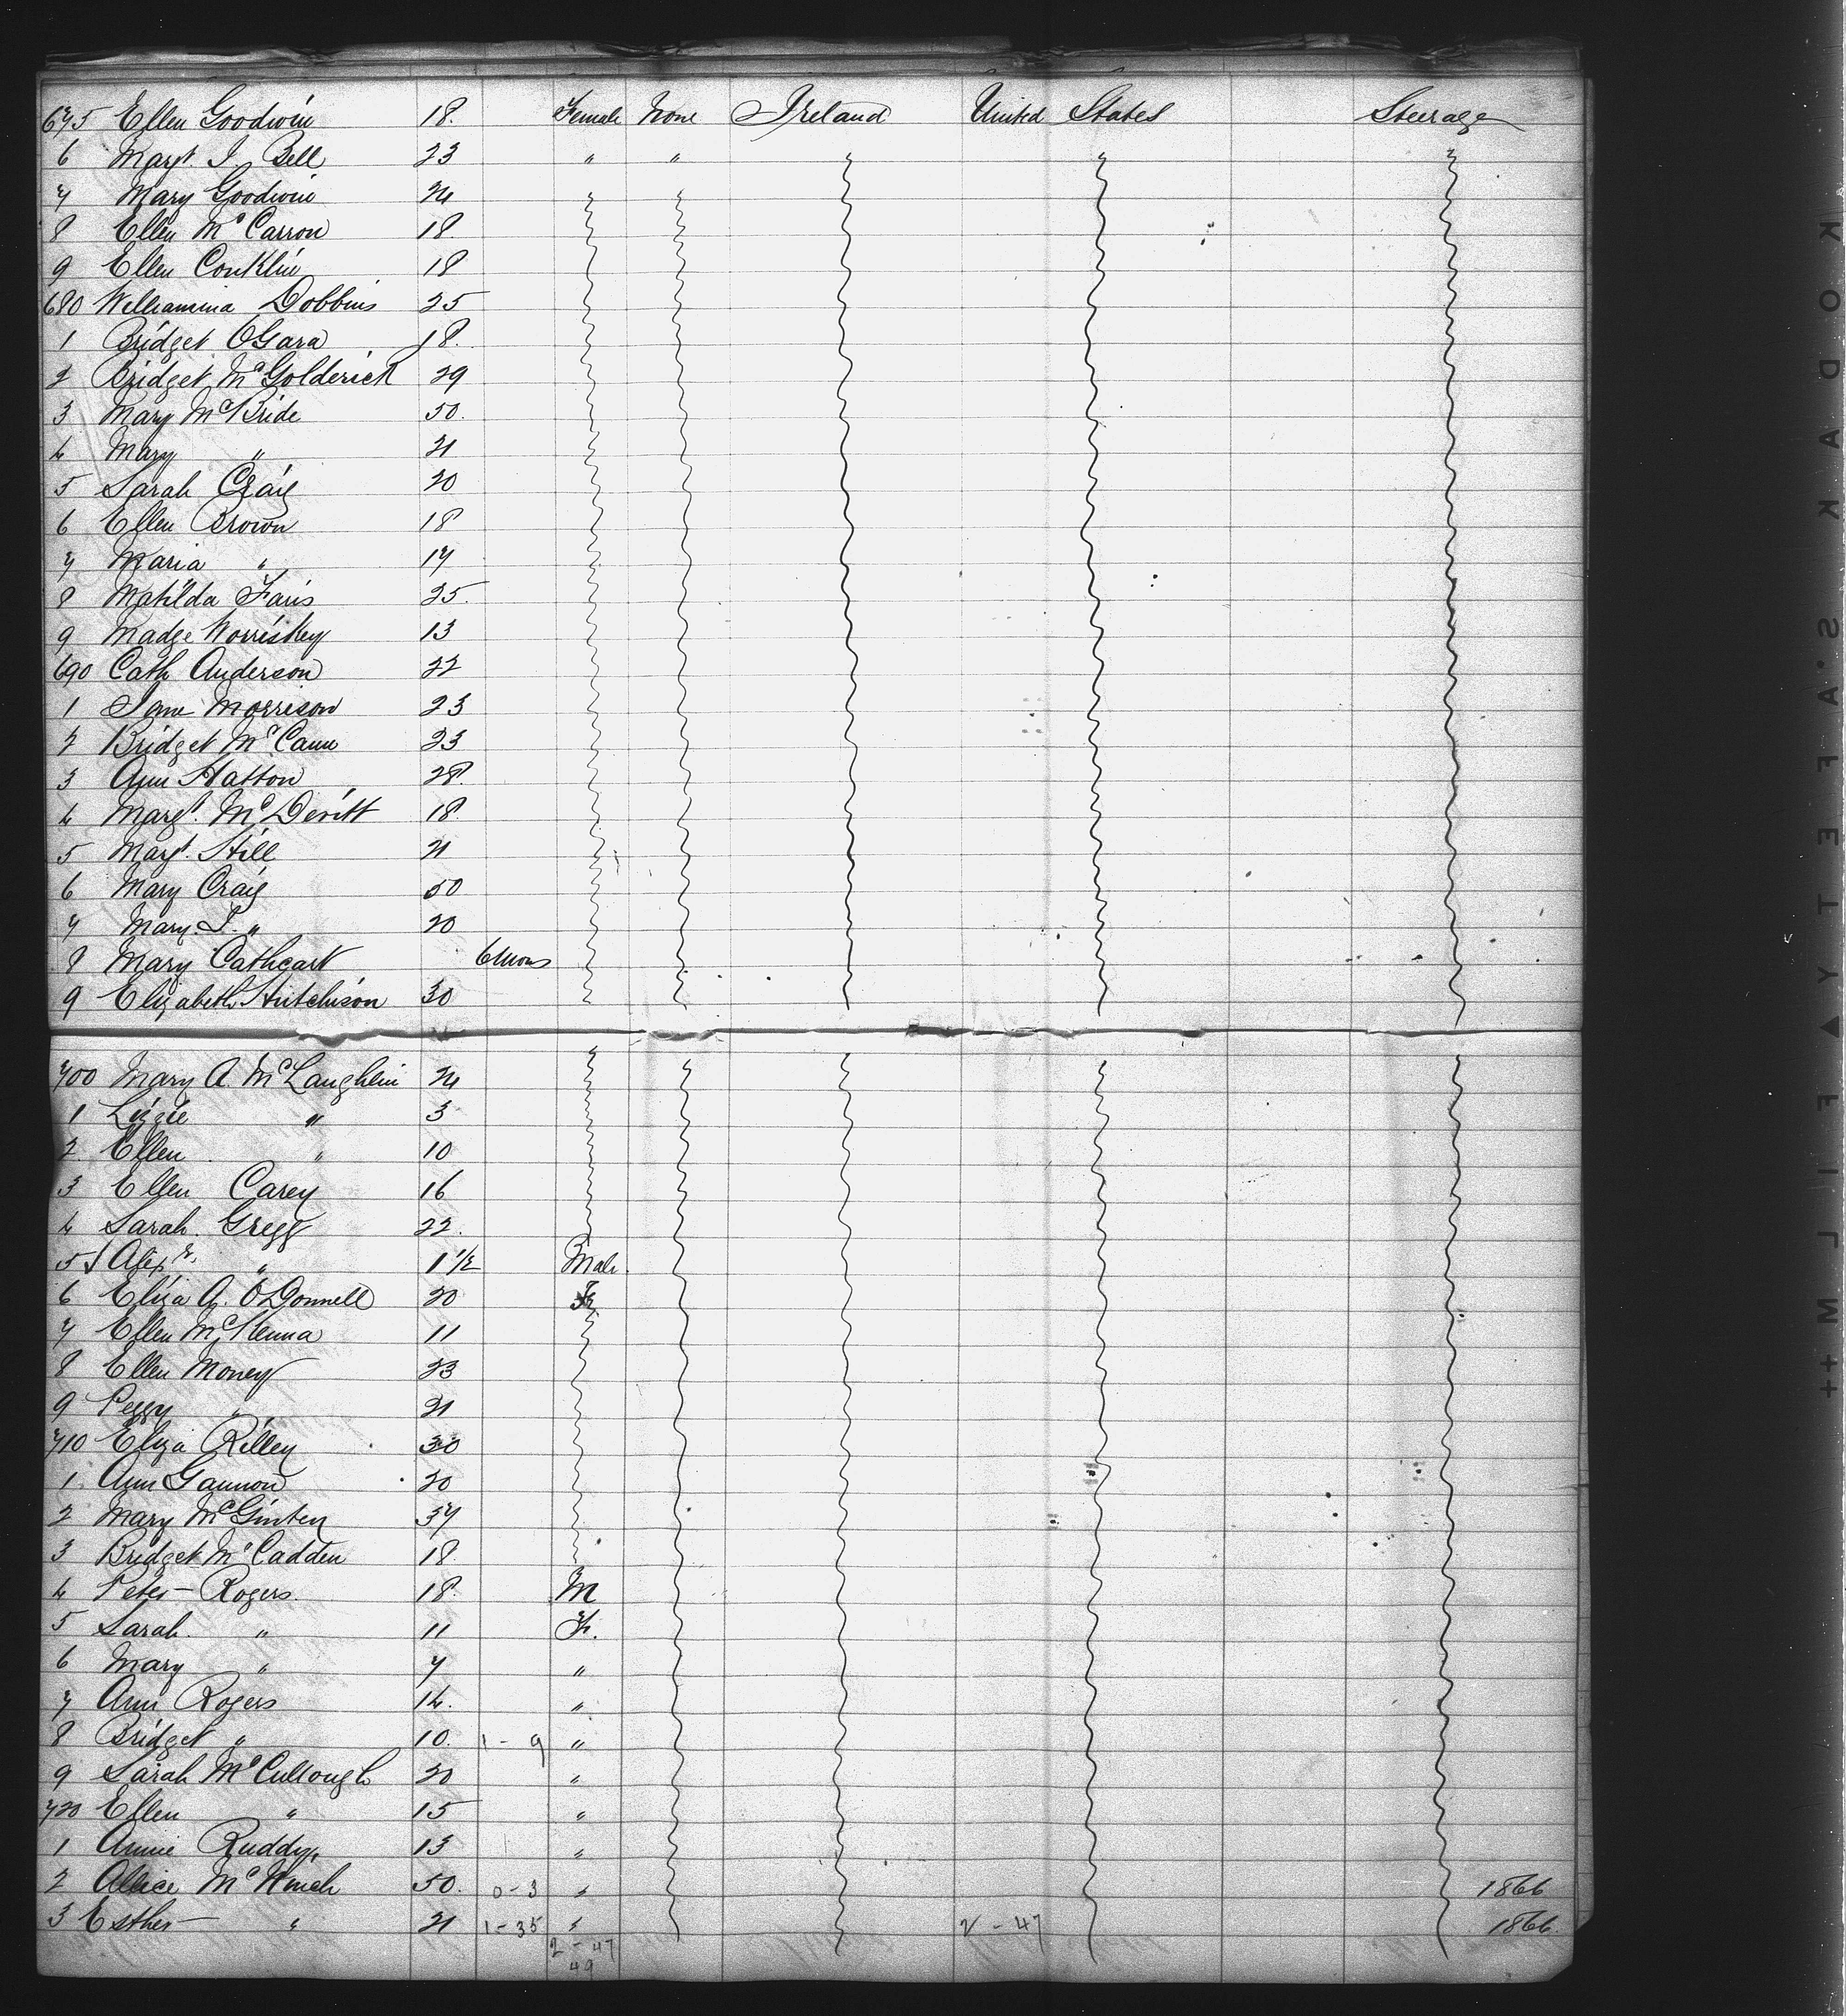 675 Ellen Goodwin 18. Female None Ireland United States Steerage
6 Margt. J. Bell 23 " "
7 Mary Goodwin 24
8 Ellen McCarron 18
9 Ellen Conklin 18
680 Williamina Dobbins 25
1 Bridget O'Gara 18.
2 Bridget McGolderick 29
3 Mary McBride 50.
4 Mary " 21
5 Sarah Craig 20
6 Ellen Brown 18
7 Maria " 17
8 Matilda Faris 25.
9 Madge Worriskey 13
690 Cath Anderson 22
1 Jane Morrison 23
2 Bridget McCann 23
3 Ann Hatton 28.
4 Margt. McDevitt 18.
5 Margt. Hill 21
6 Mary Craig 50
7 Mary. J. " 20
8 Mary Cathcart 6 mons
9 Elizabeth Hutchison 30
700 Mary A. McLaughlin 24
1 Lizzie " 3
2. Ellen " 10
3 Ellen Carey 16
4 Sarah. Gregg 22.
5 Alexr. " 1 1/2 Male.
6 Eliza A. O'Donnell 20 F.
7 Ellen McKenna 11
8 Ellen Money 23
9 Peggy " 21
710 Eliza Rilley 30
1 Ann Gannon 20
2 Mary McGinten 37
3 Bridget McCadden 18.
4 Peter Rogers. 18. M
5 Sarah. " 11 F.
6 Mary " 7 "
7 Ann Rogers 14. "
8 Bridget " 10. 1 - 9 "
9 Sarah McCullough 20 "
720 Ellen " 15 "
1 Annie Ruddy, 13 "
2 Allice 50. 0 - 3 " 1866
3 Esther " 21 1 - 35 " 2 - 47 1866.
2 - 47
49
KODAK S.AFETY ▲ FILM ++